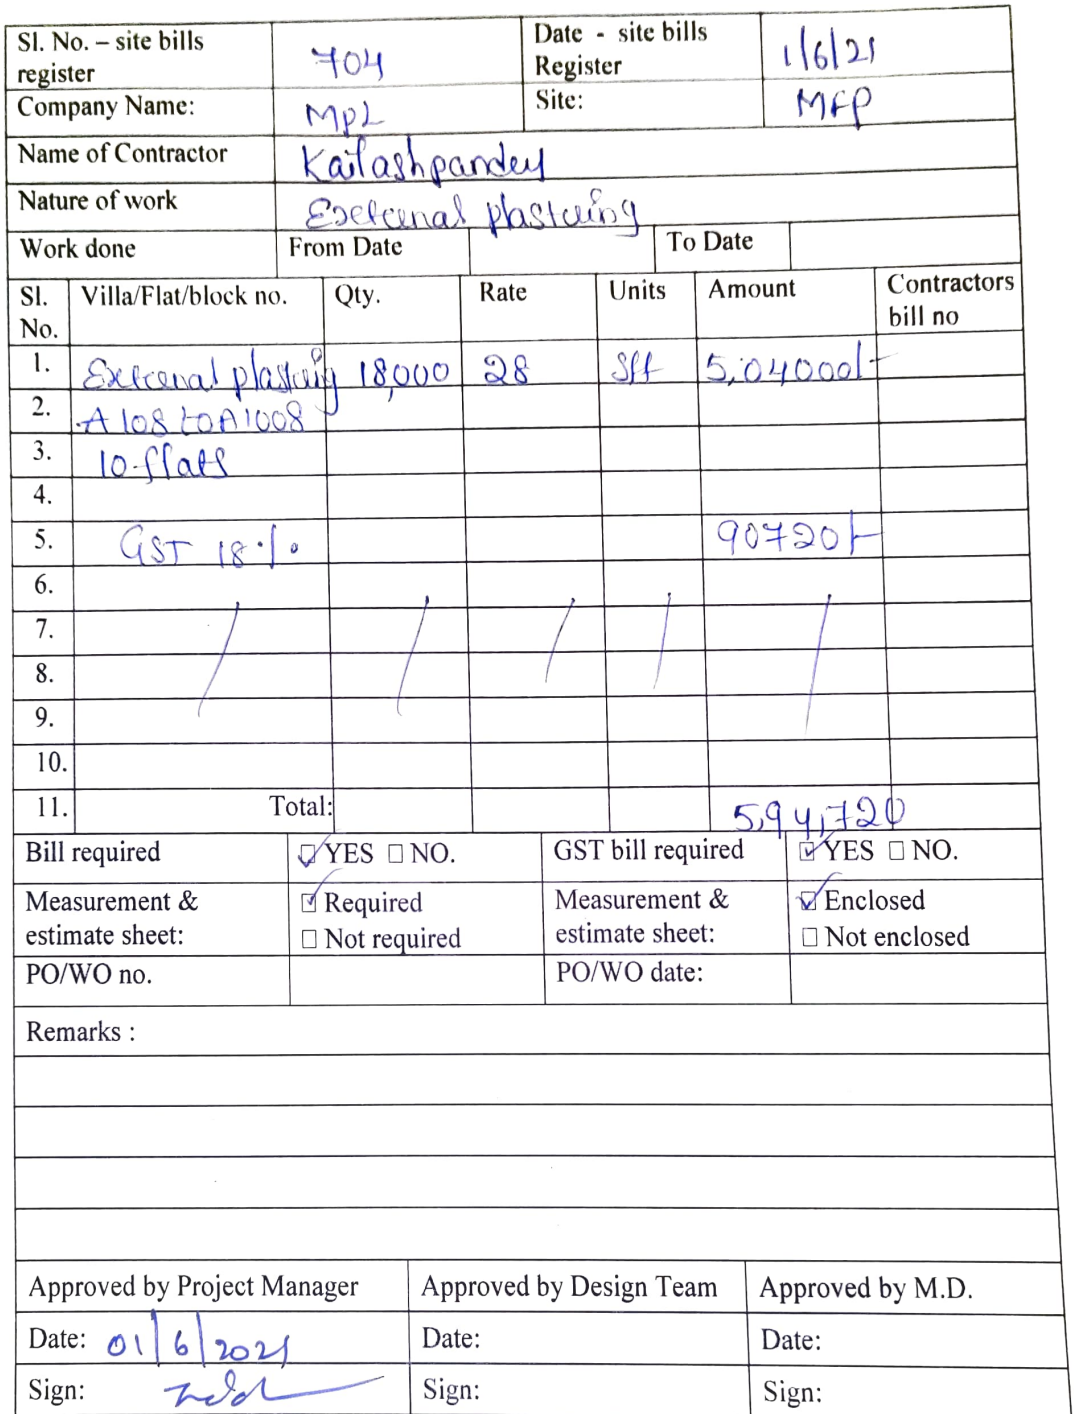 Sl. No. – site bills register 704 Date - site bills Register 1/6/21
Company Name: MPL Site: MFP
Name of Contractor Kailash pandey
Nature of work External plastering
Work done From Date To Date
Sl. No. Villa/Flat/block no. Qty. Rate Units Amount Contractors bill no
1. External plastering 18,000 28 Sft 5,04000/-
2. A108 to A1008
3. 10-flats
4.
5. GST 18 % 90720/-
6.
7.
8.
9.
10.
11. Total: 5,94,720
Bill required ☑ YES ☐ NO. GST bill required ☑ YES ☐ NO.
Measurement & estimate sheet: ☑ Required ☐ Not required Measurement & estimate sheet: ☑ Enclosed ☐ Not enclosed
PO/WO no. PO/WO date:
Remarks :
Approved by Project Manager Approved by Design Team Approved by M.D.
Date: 01/6/2021 Date: Date:
Sign: Sign: Sign: